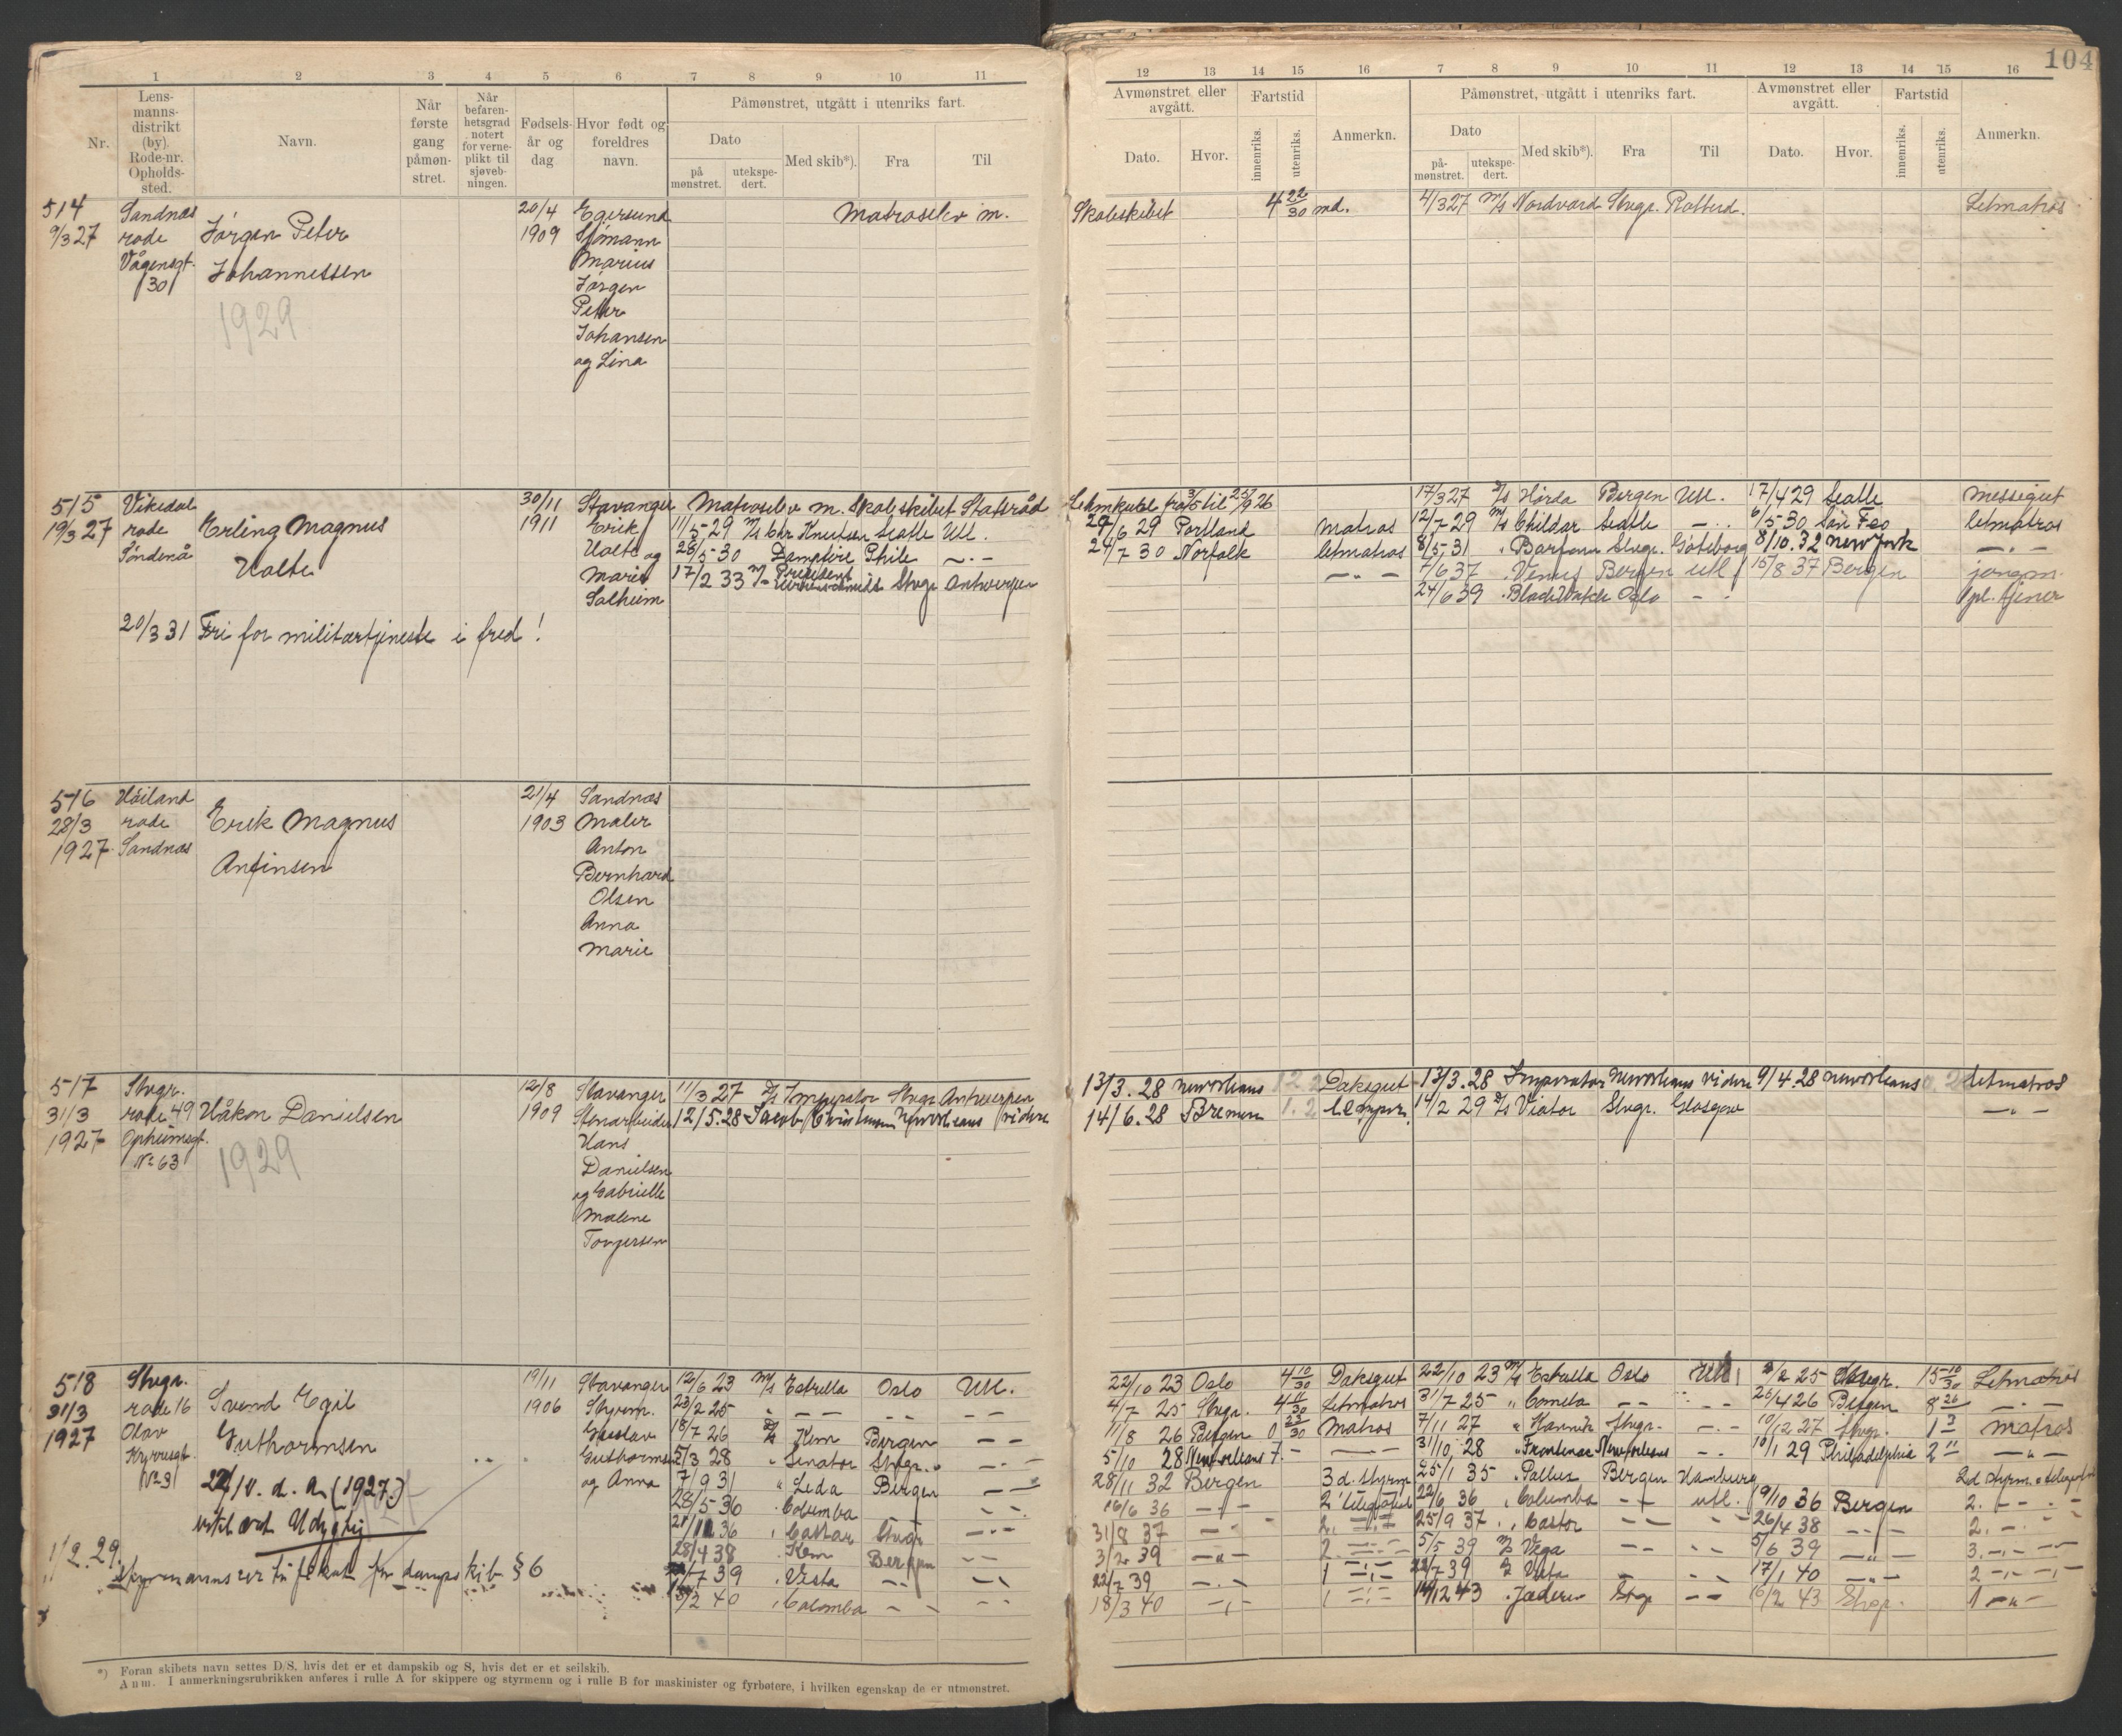 104
1 2 3 4 5 6 7 8 9 10 11
12 13 14 15 16 7 8 9 10 11 12 13 14 15 16
Nr.
Lens-
manns-
distrikt
(by).
Rode-nr.
Opholds-
sted.
Navn.
Når
første
gang
påmøn-
stret.
Når
befaren-
hetsgrad
notert
for verne-
plikt til
sjøveb-
ningen.
Fødsels-
år og
dag
Hvor født og
foreldres
navn.
Påmønstret, utgått i utenriks fart.
Dato
på
mønstret.
utekspe-
dert.
Med skib*).
Fra
Til
Avmønstret eller
avgått.
Dato.
Hvor.
Fartstid
innenriks.
utenriks.
Anmerkn.
Påmønstret, utgått i utenriks fart.
Dato
på-
mønstret.
utekspe-
dert.
Med skib*).
Fra
Til
Avmønstret eller
avgått.
Dato.
Hvor.
Fartstid
innenriks.
utenriks.
Anmerkn.
514
9/3 27
Sandnæs
rode
Vågensgt.
30
Jørgen Peter
Johannessen
1929
20/4
1909
Egersund
Sjømann
Marius
Jørgen
Peter
Johansen
og Lina
Matroselev m. Skoleskibet 4 22/30 md.
4/3 27 M/S Nordvard Stvgr. Rotterd. Letmatros
515
19/3 27
Vikedal
rode
Søndenå
Erling Magnus
Holte
30/11
1911
Stavanger
Erik
Holte og
Marie
Solheim
Matroselev m. Skoleskibet Statsråd Lehmkuhl fra 3/5 til 25/9 26
11/5 29 M/S Chr Knutsen Seatle Utl. 29/6 29 Portland Matros
28/5 30 Phile — . — 24/7 30 Norfolk letmatros
17/2 33 M/S President Stvgr Antwerpen — „ —
17/3 27 D/S Hørda Bergen Utl. 17/4 29 Seatle Messegut
12/7 29 M/S Childar Seatle — . . 6/5 30 San Fco letmatros
8/5 31 „ Stvgr. Göteborg 8/10.32 New York — . —
7/6 37 „ Venus Bergen utl. 15/8 37 Bergen jongm.
24/6 39 „ Black Watch Oslo — — pl. tjener
20/3 31 Fri for militærtjeneste i fred!
516
28/3
1927
Høiland
rode
Sandnæs
Erik Magnus
Anfinsen
21/4
1903
Sandnæs
Maler
Anton
Bernhard
Olsen
Anna
Marie
517
31/3
1927
Stvgr.
rode 49
Opheimsgt.
No 63
Håkon Danielsen
1929
12/8
1909
Stavanger
Stenarbeider
Hans
Danielsen
og Gabrielle
Malene
Tongersen
11/3 27 D/S Imperator Stvgr Antwerpen 13/3.28 Neworleans Daksgut
12/5.28 Jacob Christensen Neworleans videre 14/6.28 Bremen
13/3.28 Imperator Neworleans videre 9/4.28 Neworleans letmatros
14/2 29 D/S Viator Stvgr. Glasgow — „ —
518
31/3
1927
Stvgr.
rode 16
Olav
Kyrresgt.
No 31
Svend Egil
Guthormsen
22/10. d. a. (1927)
19/11
1906
Stavanger
Styrm.
Gustav
Guthormsen
og Anna
12/6 23 M/S Estrella Oslo Utl. 22/10 23 Oslo 4 10/30 Daksgut
23/2 25 „ — — — — 4/7 25 Stvgr. 4 10/30 Letmatros
18/7 26 D/S Kem Bergen — — 11/8 26 Bergen 0 23/30 Matros
5/3 28 „ Senator Stvgr. — . — 5/10 28 Neworleans 7. —
7/9 31 „ Leda Bergen — 28/11 32 Bergen 3 d. styrm.
28/5 36 „ Columba 16/6 36 — „ — 2 telegrafist
21/11 36 „ Castor Stvgr — . — 31/8 37 — „ — 2.
28/4 38 „ Kem Bergen — — 3/2 39 — „ — 2
7/7 39 „ Vesta — — 22/7 39 — . — 1
3/2 40 „ Columba — — 18/3 40 — „ — 1
22/10 23 M/S Estrella Oslo Utl. 3/2 25 Stvgr. 15 10/30 Letmatros
31/7 25 „ Cometa — — 26/4 26 Bergen 8 26 — . —
7/11 27 „ Kannik Stvgr. — . — 10/12 27 Stvgr. 1 3 Matros
31/10 28 „ Frontenac Neworleans — . 10/1 29 Philadelphia 2 11 — „ —
25/1 35 „ Pallus Bergen Hamburg 2d styrm. o telegrafist
22/6 36 „ Columba — — utl. 19/10 36 Bergen 2. — . —
25/9 37 „ Castor — — 26/4 38 — „ — 2.
5/5 39 M/S Vega — — 5/6 39 — „ — 3.
22/7 39 D/S Vesta — 17/1 40 — „ — 2
14/12 43 „ Jæderen Stvgr — — 16/2 43 Stvgr. 1 — „ —
1/2.29. Styrmannscertifikat for dampskib § 6
*) Foran skibets navn settes D/S, hvis det er et dampskib og S, hvis det er et seilskib.
Anm. I anmerkningsrubrikken anføres i rulle A for skippere og styrmenn og i rulle B for maskinister og fyrbøtere, i hvilken egenskap de er utmønstret.